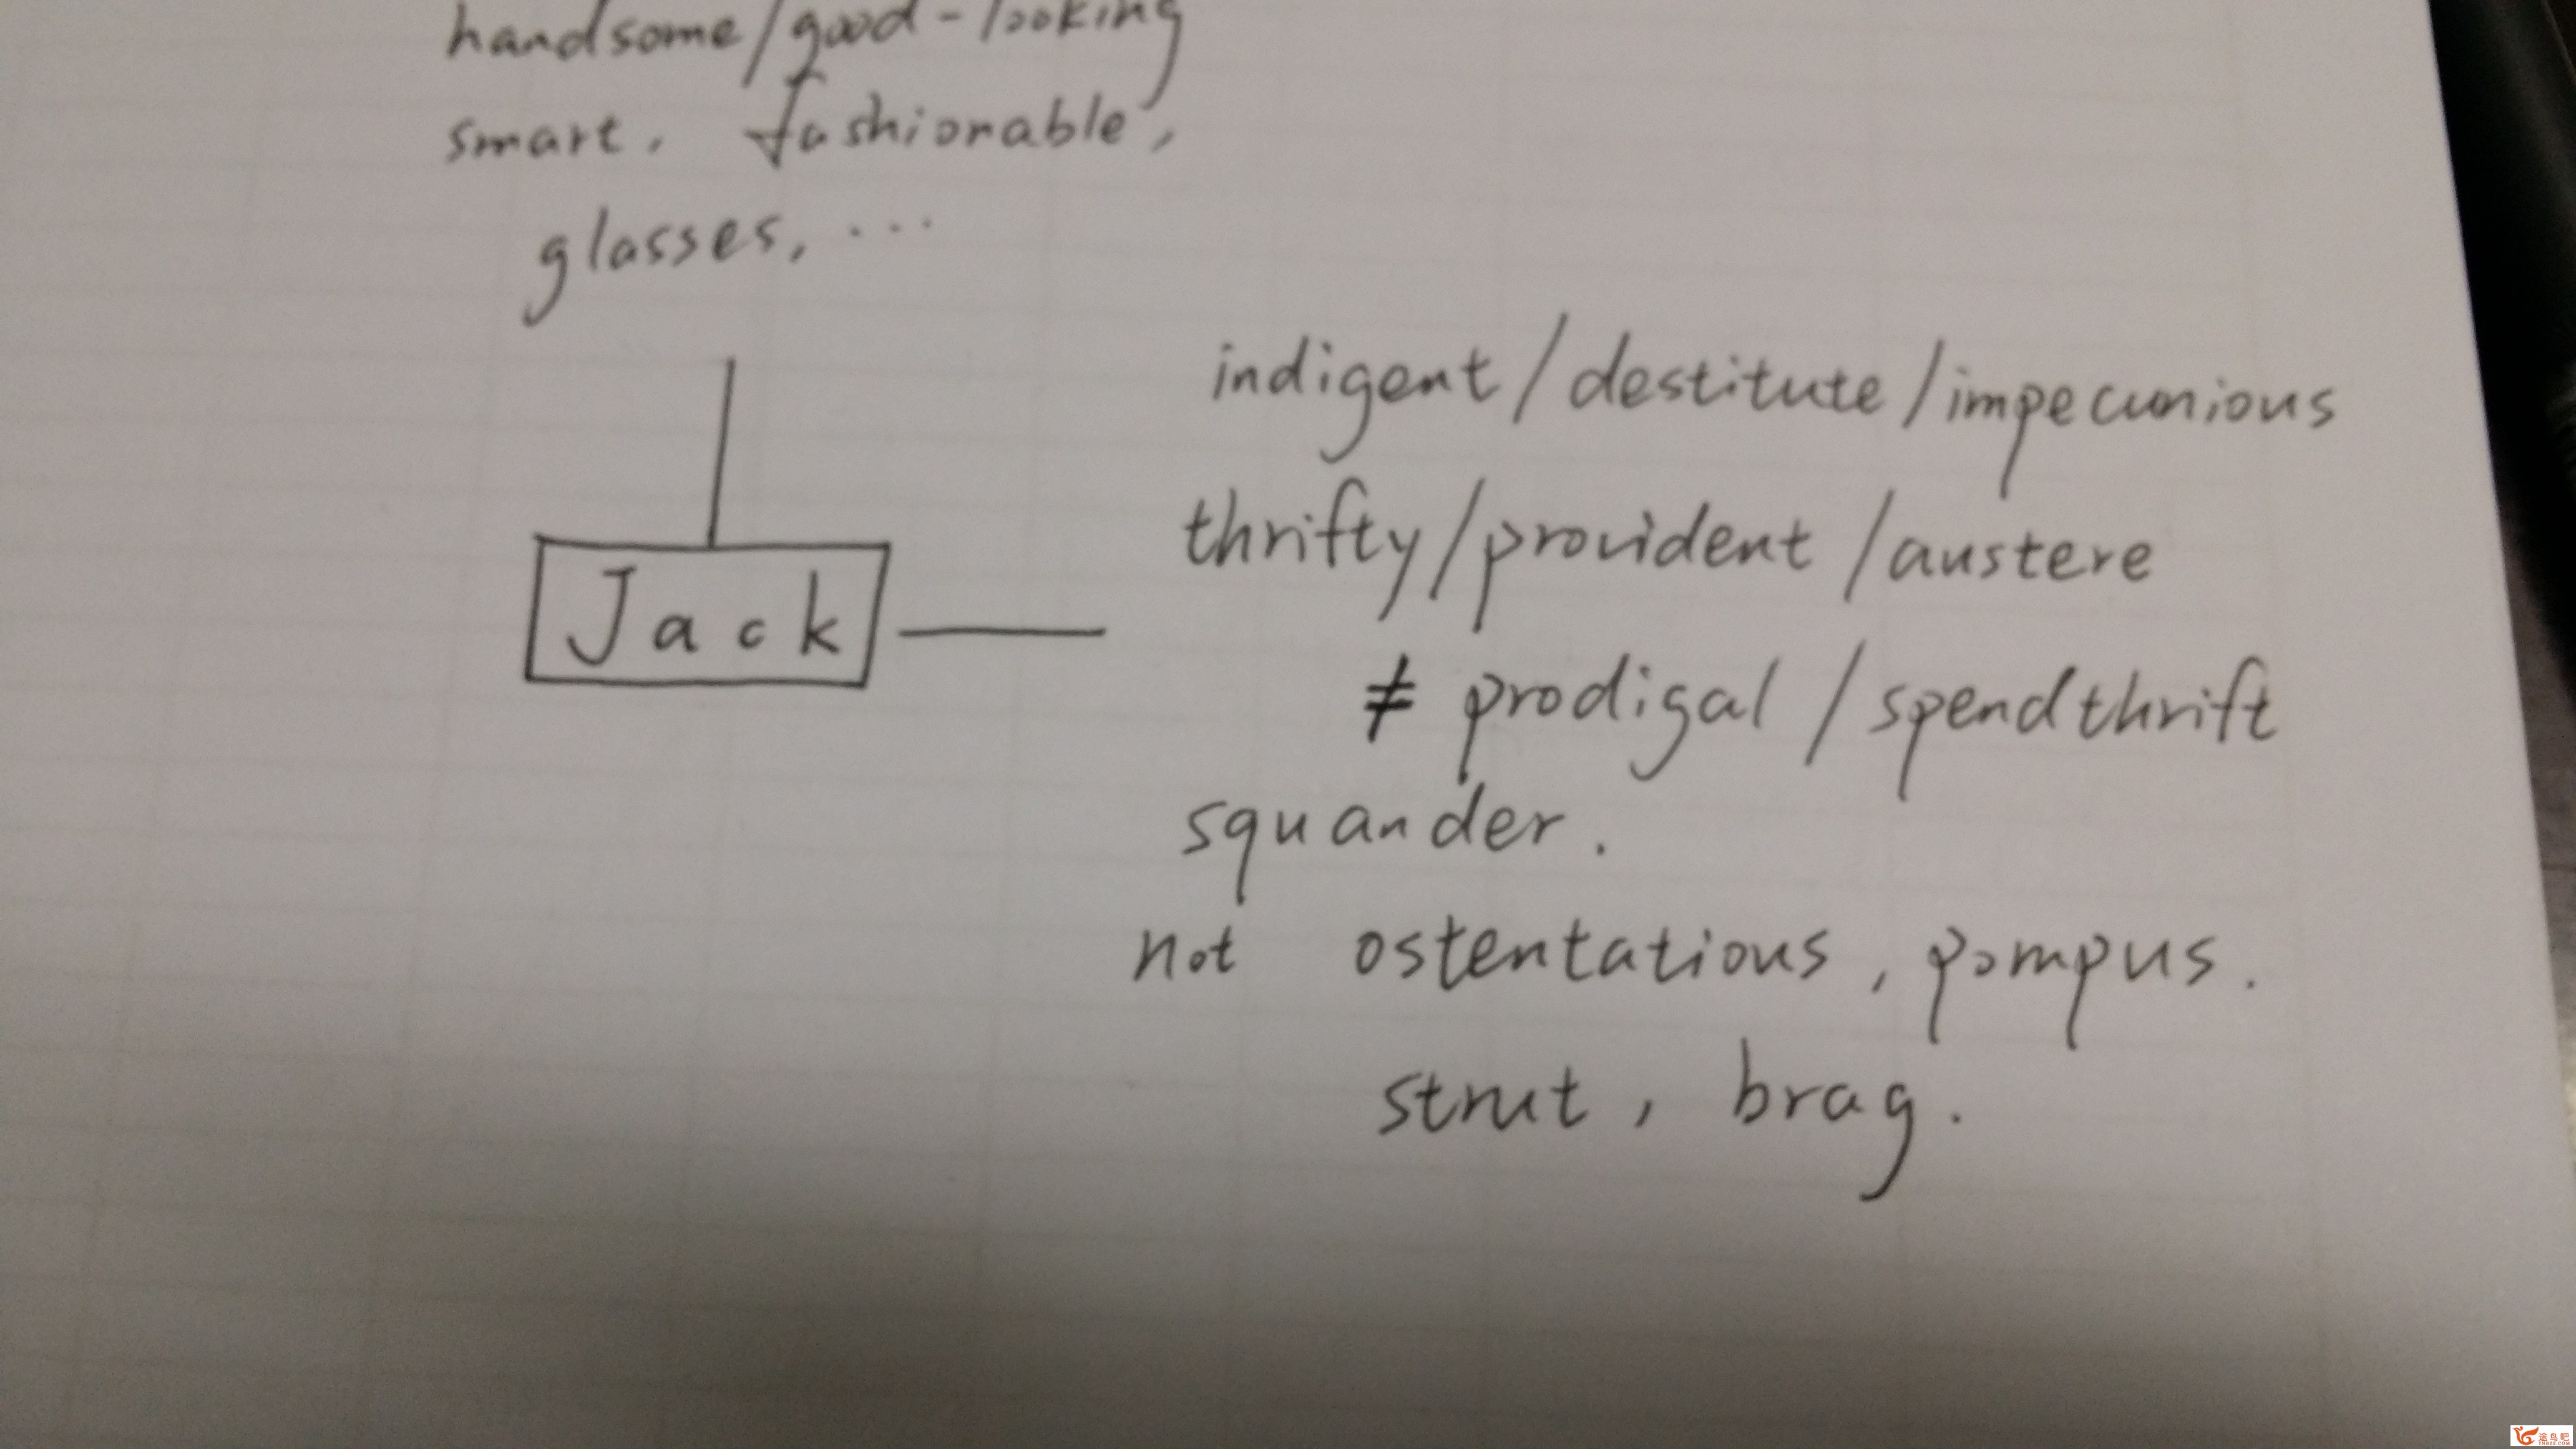 handsome/good-looking
smart, fashionable,
glasses, ...
indigent/destitute/impecunious
thrifty/provident/austere
Jack
≠ prodigal/spendthrift
squander.
not ostentatious, pompus.
strut, brag.
途鸟吧